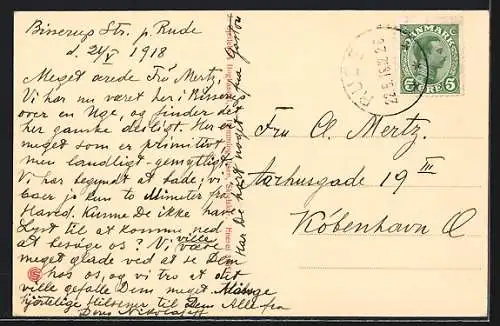 Bisserup Str. p. Rude
d. 24/V 1918
Meget ærede Frú Mertz,
Vi har nu været her i Bisserup
over en Uge, og finder det
her ganske dejligt. Her er
meget som er primitivt
men landligt-gemytligt.
Vi har begyndt at bade, vi
boer jo kun to Minuter fra
Havet. Kunne De ikke have
Lyst til at komme ned
at besöge os? Vi ville være
meget glade ved at se Dem
hos os, og vi tro at det
ville gefalle Dem meget. Mange
hjertelige Hilsener til Dem Alle fra
Deres
Har De hört noget fra
RUDE
22.5.18
DANMARK
5 ØRE 5
Fru A. Mertz.
Aarhusgade 19 III
København Ø